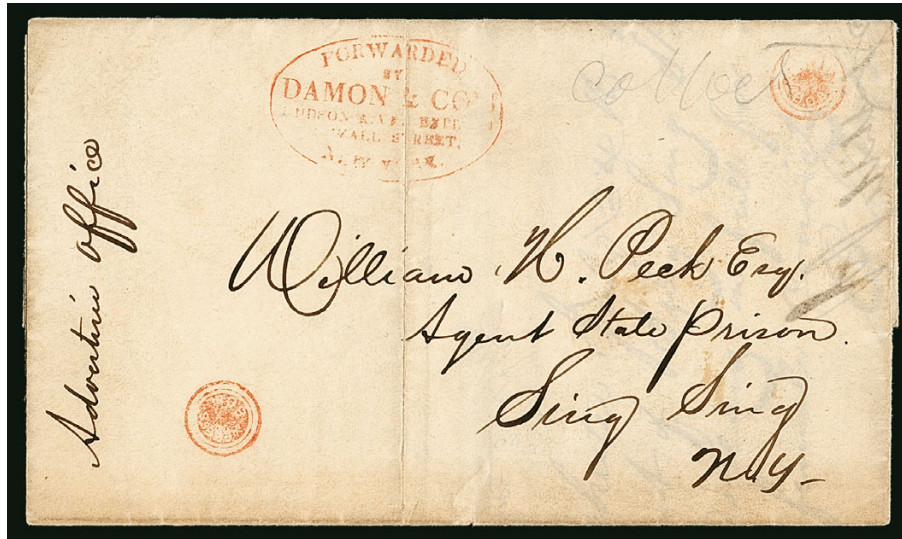 FORWARDED
BY
DAMON & CO'S
HUDSON RIVER EXP.
WALL STREET,
NEW YORK.
collect
Advertise office
William H. Peck Esq.
Agent State Prison.
Sing Sing
N.Y-